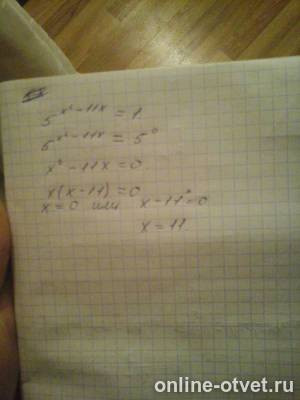 5^{x²-11x} = 1
5^{x²-11x} = 5⁰
x²-11x=0
x(x-11)=0
x=0 или x-11=0
x=11
online-otvet.ru